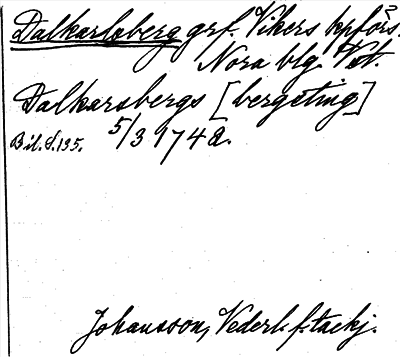 Dalkarlsberg grf. Vikers kpförs.
Nora blg. Vst.
Dalkarsbergs [bergsting]
Bil. S. 135. 5/3 1742.
Johansson, Vederl. f. tackj.